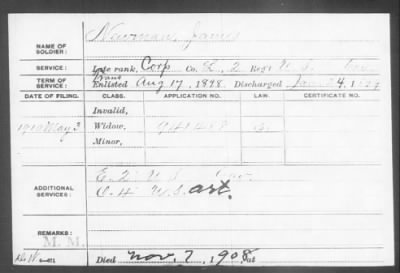 Newman, James
NAME OF
SOLDIER:
SERVICE:
Late rank, Corp Co. E, 2 Reg't U.S. Cav
TERM OF
SERVICE:
Enlisted Aug 17, 1898. Discharged Jan 24, 1899
DATE OF FILING.
CLASS.
APPLICATION NO.
LAW.
CERTIFICATE NO.
Invalid,
1919 May 3
Widow,
Minor,
ADDITIONAL
SERVICES:
E. 2 U.S. Cav
O. H. U.S. art.
REMARKS:
M. M.
Died Nov. 7, 1908, at